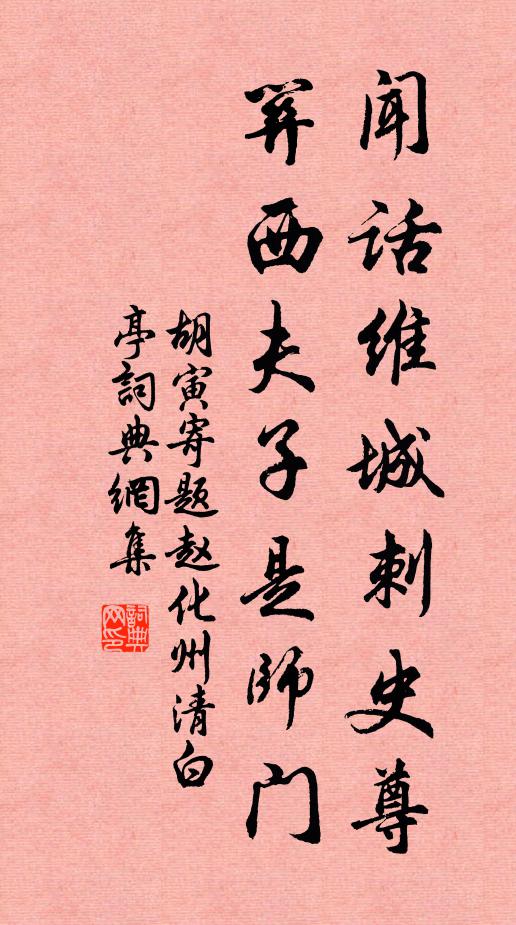 闻话维城刺史尊
关西夫子是師门
胡寅寄题赵化州清白
亭詞典網集
詞典
网印